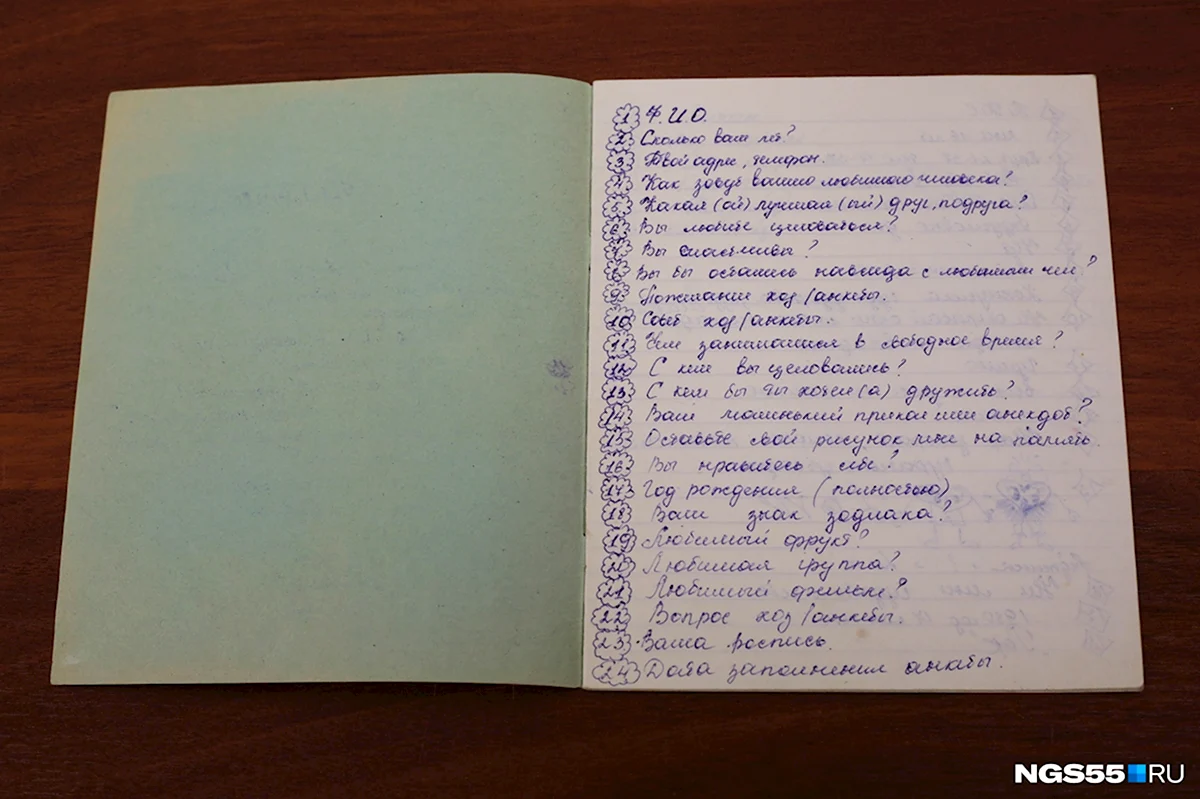 1 Ф.И.О.
2 Сколько вам лет?
3 Твой адрес, телефон.
4 Как зовут вашего любимого человека?
5 Какая (ой) лучшая (ий) друг, подруга?
6 Вы любите целоваться?
7 Вы счастливы?
8 Вы бы остались навсегда с любимым чел?
9 Пожелание хоз/анкеты.
10 Совет хоз/анкеты.
11 Чем занимаешься в свободное время?
12 С кем вы целовались?
13 С кем бы ты хотел(а) дружить?
14 Ваш маленький прикол или анекдот?
15 Оставьте свой рисунок мне на память
16 Вы нравитесь себе?
17 Год рождения (полностью)
18 Ваш знак зодиака?
19 Любимый фрукт?
20 Любимая группа?
21 Любимый фильм?
22 Вопрос хоз/анкеты.
23. Ваша роспись.
24 Дата заполнения анкеты.
NGS55 RU